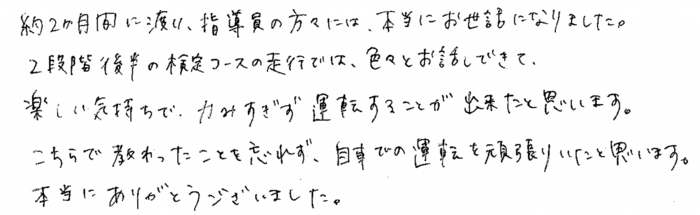 約2か月間に渡り、指導員の方々には、本当にお世話になりました。
2段階後半の検定コースの走行では、色々とお話しできて、
楽しい気持ちで、力みすぎず運転することが出来たと思います。
こちらで教わったことを忘れず、自車での運転を頑張りいたと思います。
本当にありがとうございました。